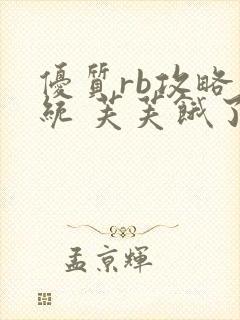 優質rb攻略
統 芙芙餓了
孟京輝